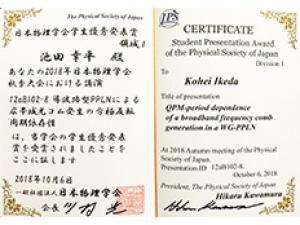 The Physical Society of Japan
日本物理学会学生優秀発表賞
領域1
池田 幸平 殿
あなたの2018年日本物理学会
秋季大会における講演
12aB102-8 導波路型PPLNによる
広帯域光コム発生の分極反転
周期依存性
は、当学会の学生優秀発表
賞を受賞されましたことを
ここに証します
2018年10月6日
一般社団法人日本物理学会
会長 川村 光
The Physical Society of Japan
JPS
CERTIFICATE
Student Presentation Award
of the Physical Society of Japan
Division 1
to
Kohei Ikeda
Title of presentation
QPM-period dependence
of a broadband frequency comb
generation in a WG-PPLN
At 2018 Autumn meeting of the Physical
Society of Japan.
Presentation ID 12aB102-8.
October 6, 2018
President, The Physical Society of Japan
Hikaru Kawamura